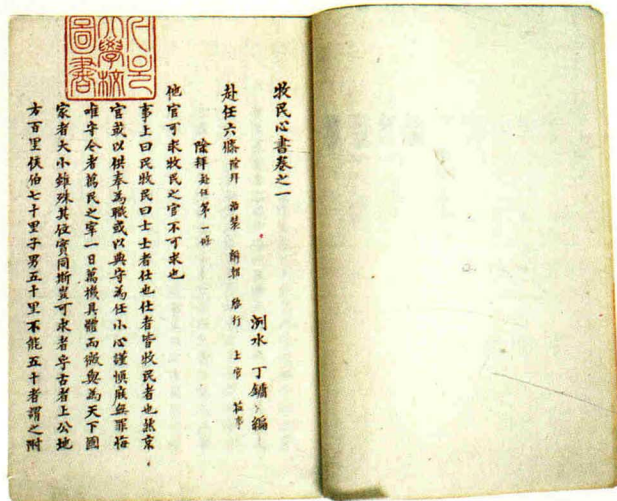 서울
大學校
圖書
牧民心書卷之一
洌水 丁鏞 編
赴任六條 除拜 治裝 辭朝 啓行 上官 莅事
除拜 赴任第一條
他官可求牧民之官不可求也
事上曰民牧民曰士士者仕也仕者皆牧民者也然京
官或以供奉為職或以典守為任小心謹慎庶無罪悔
唯守令者萬民之宰一日萬機具體而微與為天下國
家者大小雖殊其位實同斯豈可求者乎古者上公地
方百里侯伯七十里子男五十里不能五十者謂之附